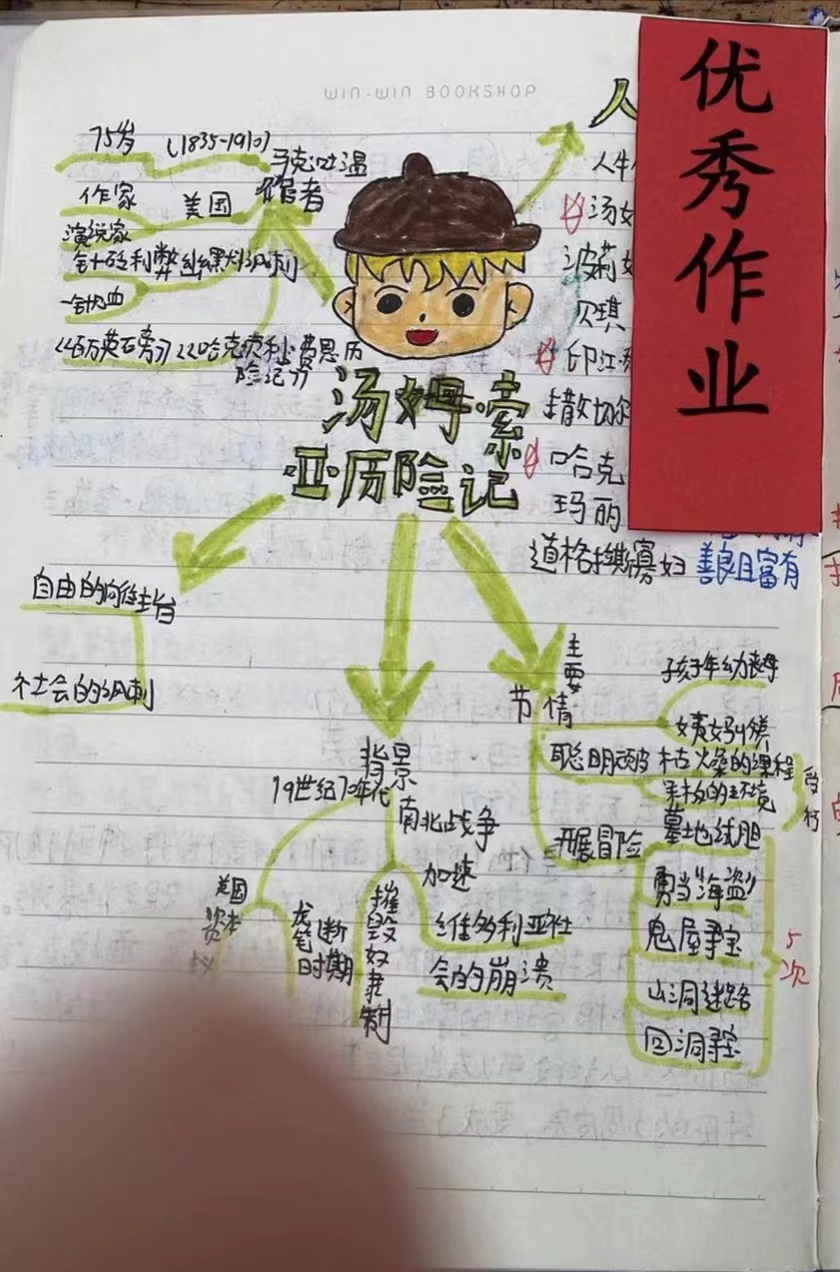 WIN-WIN BOOKSHOP
优秀作业
75岁
(1835-1910)
马克·吐温
作者
作家
美国
演说家
针砭利弊
一针见血
《百万英石旁》《哈克贝利·费恩历
险记》
汤姆·索
亚·历险记
人
汤姆
波莉
贝琪
印江
撒切尔
哈克
玛丽
道格拉斯寡妇
善良且富有
自由的向往
主旨
社会的讽刺
主要
情节
孩子年幼丧母
姨妈
聪明顽
枯燥的课程
环境
开展冒险
墓地试胆
勇当“海盗”
鬼屋寻宝
山洞迷路
回洞寻宝
5次
背景
19世纪70年代
南北战争
加速
美国
资本
垄断
时期
摧毁奴隶制
维多利亚社
会的崩溃